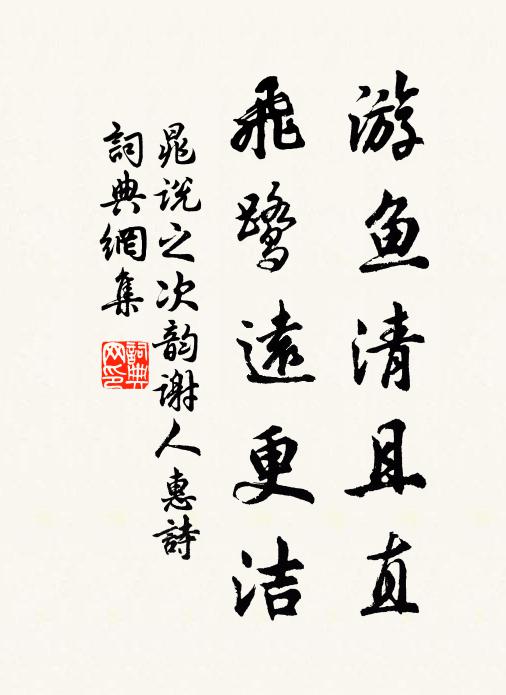 游鱼清且直
飛鹭遠更洁
晁说之次韵谢人惠詩
詞典網集
詞典网印